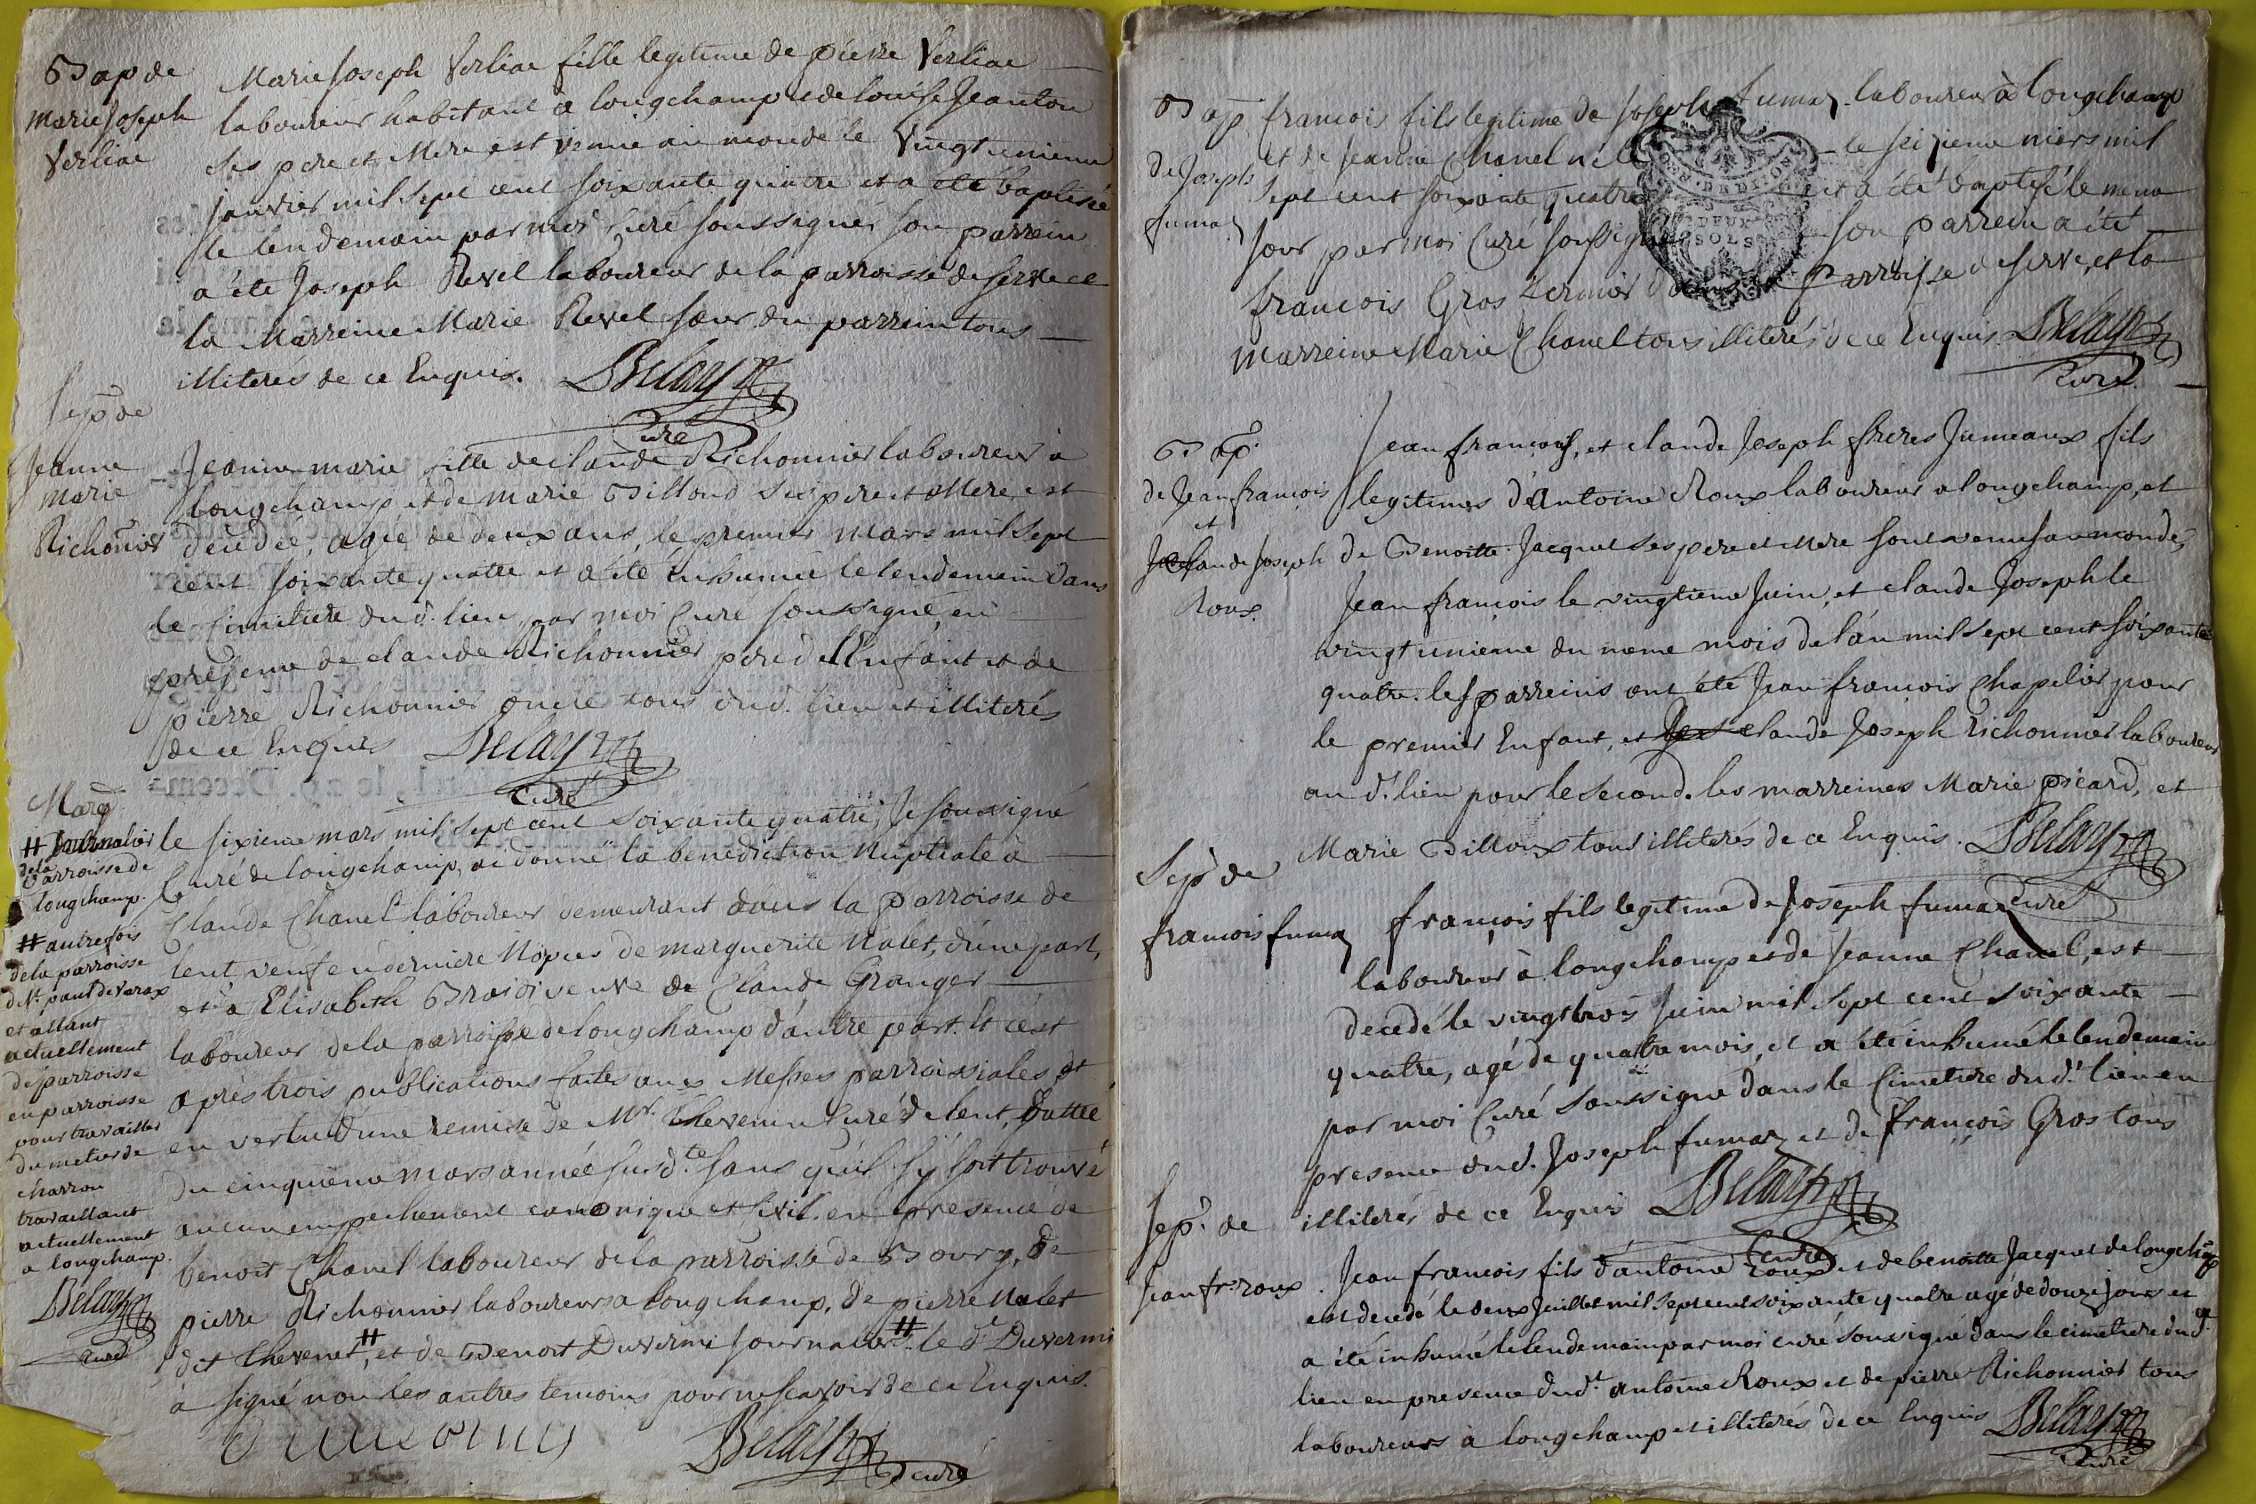 Bap de
Marie Joseph
Verliac
Marie Joseph Verliac fille legitime de pierre Verliac
laboureur habitant a longchamp et de louise Jeanton
ses pere et Mere est venue au monde le Vingt unieme
janvier mil sept cent soixante quatre et a été baptisée
le lendemain par moi Curé soussigné, son parrein
a été Joseph Revel laboureur de la parroisse de servave et
la Marreine Marie Revel sœur du parrein tous
illiterés de ce Enquis. Belay
Curé
Sep. de
Jeanne
marie
Richonier
Jeanne marie fille de claude Richonnier laboureur a
longchamp et de marie Billoud ses pere et Mere, est
decedée, agée de deux ans, le premier mars mil sept
cent soixante quatre et a été inhumée le lendemain dans
le Cimetiere dud. lieu, par moi Curé soussigné, en
presence de claude Richonnier pere de l'Enfant et de
pierre Richonnier oncle tous dud. lieu et illiterés
de ce Enquis Belay
Curé
Marg
# Journalier
de la
Parroisse de
longchamp.
# autrefois
de la parroisse
de St. paul de Varax
et allant
actuellement
de parroisse
en parroisse
pour travailler
du metier de
charron
travaillant
actuellement
a longchamp.
Belay
Curé
le sixieme mars mil sept cent soixante quatre, Je soussigné
Curé de longchamp, ai donné la benediction Nuptiale a
Claude Chanel laboureur demeurant dans la parroisse de
lent, veuf en derniere Nopces de marguerite Nalet, d'une part,
et a Elisabeth Braidi veuve de Claude Granger
laboureur de la parroisse de longchamp d'autre part. et c'est
apres trois publications faites aux Messes parroissiales, et
en vertu d'une remise de Mr. Thevenin Curé de lent, Dattée
du cinquieme mars année susd.te sans qu'il s'y soit trouvé
aucun empechement canonique et Civil. en presence de
benoit Chanel laboureur de la parroisse de Bourg, de
pierre Richonnier laboureur a longchamp, de pierre Nalet
dit Thevenet #, et de Benoit Duvermi journalier #. le d.t Duvermi
a signé non les autres temoins pour ne scavoir de ce Enquis.
Belay
Curé
Bap.
de Joseph
fumaz
francois fils legitime de Joseph fumaz laboureur a longchamp
et de Jeanne Chanel le seizieme mars mil
sept cent soixante quatre et a été baptisé le meme
jour par moi Curé soussigné son parrein a été
francois Gros Parroisse de servave, et la
marreine Marie Chanel tous illiterés de ce Enquis. Belay
Curé
DE DIJON
DEUX
SOLS
Bap.
de Jean francois
et
claude Joseph
Roux.
Jean francois, et claude Joseph freres Jumeaux fils
legitimes d'Antoine Roux laboureur a longchamp, et
de Benoitte Jacquet ses pere et Mere sont venus au monde,
Jean francois le vingtieme Juin, et claude Joseph le
vingt unieme du meme mois de l'an mil sept cent soixante
quatre. les parreins ont été Jean francois Chapelier pour
le premier Enfant, et claude Joseph Richonnier laboureur
au d.t lieu pour le second. les marreines Marie picard, et
Marie Billoux tous illiterés de ce Enquis. Belay
Curé
Sep. de
francois fumaz
françois fils legitime de Joseph fumaz
laboureur à longchamp et de Jeanne Chanel, est
decedé le vingt trois juin mil sept cent soixante
quatre, agé de quatre mois, et a été inhumé le lendemain
par moi Curé soussigné dans le Cimetiere dud.t lieu en
presence dud. Joseph fumaz et de françois Gros tous
illiterés de ce Enquis Belay
Curé
Sep. de
Jean fr. roux
Jean francois fils d'antoine Roux et de benoitte Jacquet de longchamp
est decedé le deux Juillet mil sept cent soixante quatre agé de douze jours et
a été inhumé le lendemain par moi curé soussigné dans le cimetiere dud.t
lieu en presence dud.t antoine Roux et de pierre Richonnier tous
laboureurs à longchamp et illiterés de ce Enquis Belay
Curé